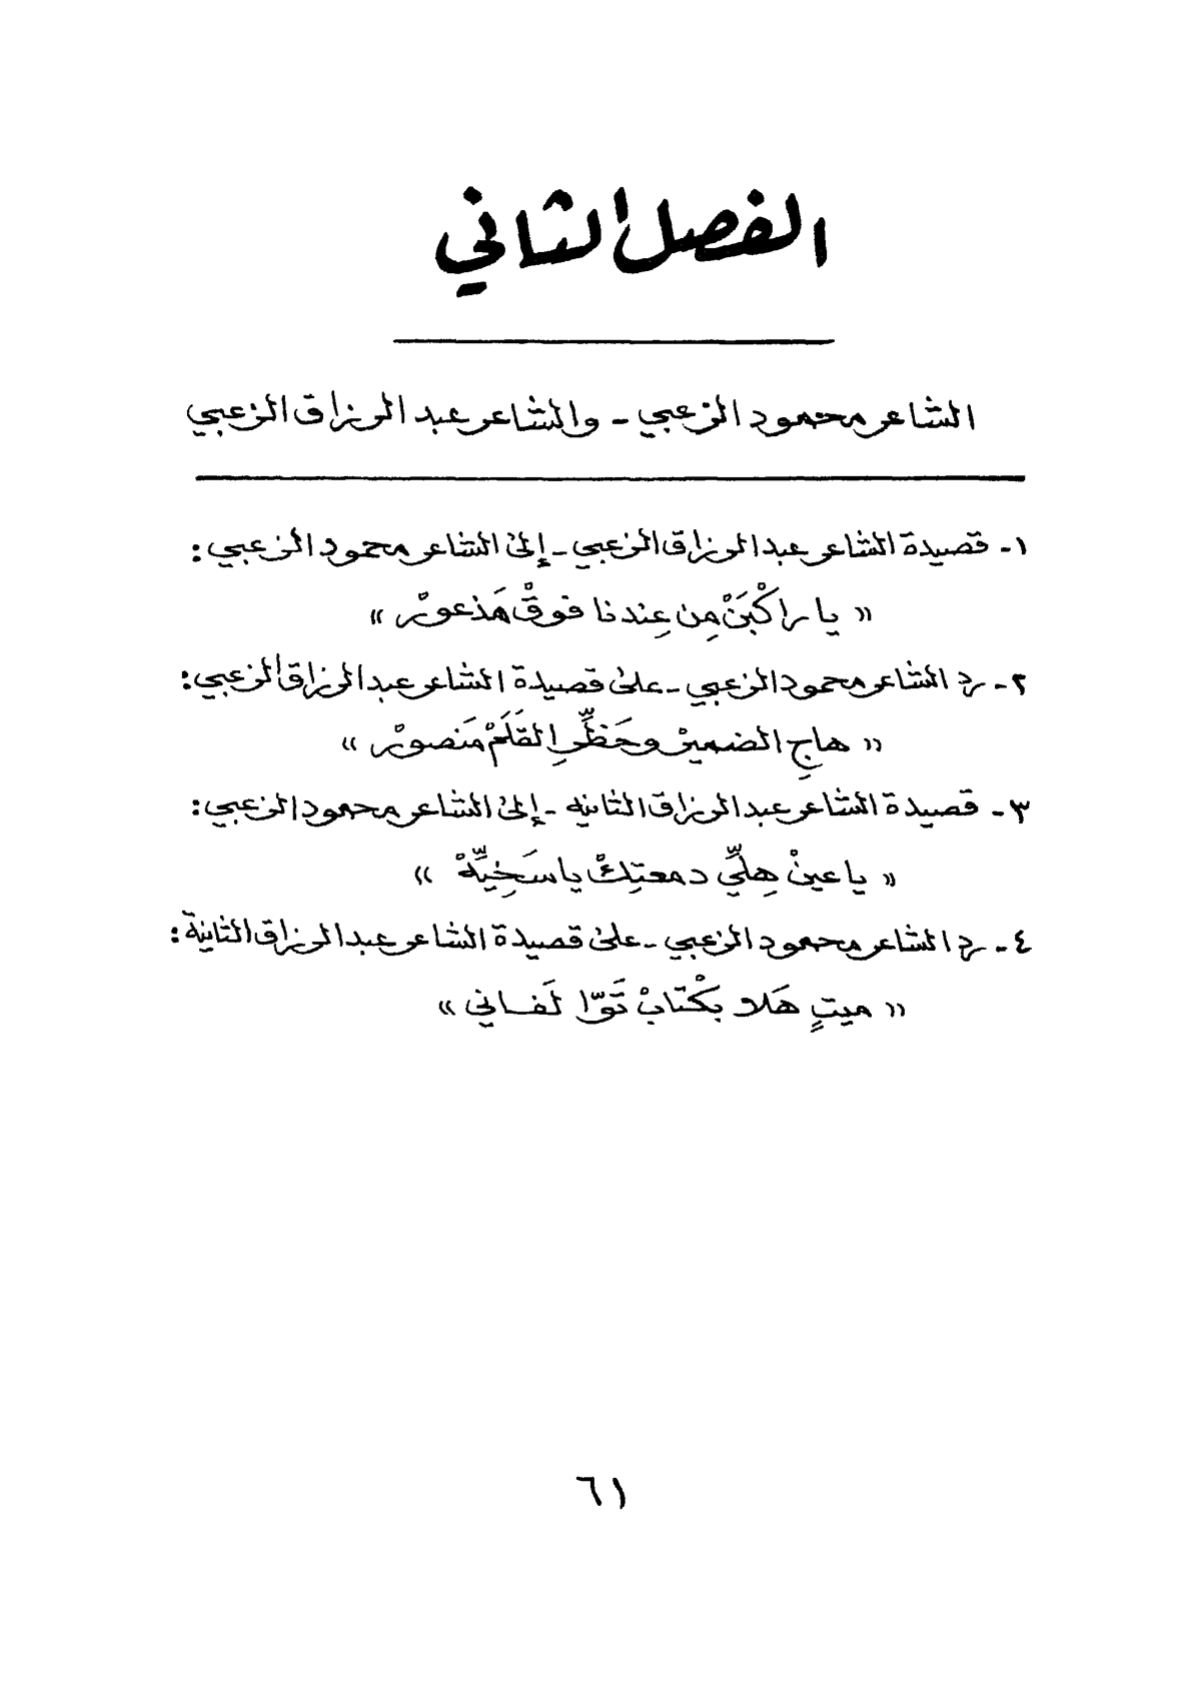 الفصل الثاني
الشاعر محمود الزعبي - والشاعر عبد الرزاق الزعبي
١- قصيدة الشاعر عبد الرزاق الزعبي - إلى الشاعر محمود الزعبي :
« يا راكْبَنْ مِن عِندنا فوقْ مَذعورْ »
٢- رد الشاعر محمود الزعبي - على قصيدة الشاعر عبد الرزاق الزعبي :
« هاجِ الضميرْ وحَظِّي القَلَمْ مَنصورْ »
٣- قصيدة الشاعر عبد الرزاق الثانيه - إلى الشاعر محمود الزعبي :
« يا عينْ هِلِّي دمعتِكْ يا سَخِيِّهْ »
٤- رد الشاعر محمود الزعبي - على قصيدة الشاعر عبد الرزاق الثانية :
« ميتٍ هَلا بكْتابْ تَوّا لَفاني »
٦١